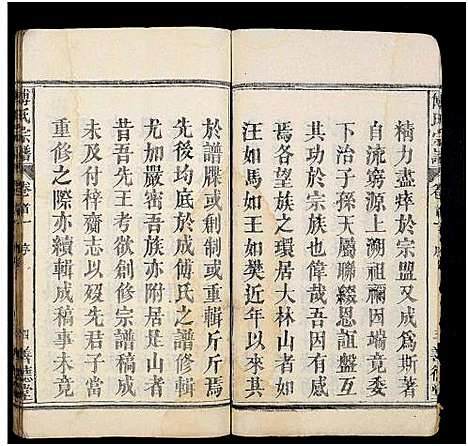 傅氏宗譜
卷首一
精力盡瘁於宗盟又成爲斯著
自流窮源上溯祖禰因端竟委
下治子孫天屬聯綴恩誼盤互
有功於宗族 吾因有感
焉各望族之環居大林山者如
汪如馬如王如樊近年以來
於譜牒或創或重輯斤斤焉
先後於成傅氏之譜修輯
尤加嚴密吾族亦附居是山者
欲創修宗譜稿成
未及付梓齎志以歿先君子當
重修之際亦續輯成稿事未竟
傅氏宗譜
卷首一
序
四